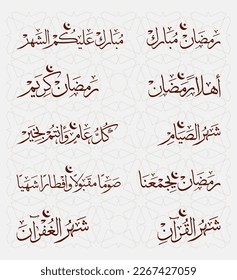 رمضان مبارك
مبارك عليكم الشهر
أهلا برمضان
رمضان كريم
شهر الصيام
كل عام وأنتم بخير
رمضان يجمعنا
صوما مقبولا وإفطارا شهيا
شهر القرآن
شهر الغفران
shutterstock.com · 2267427059